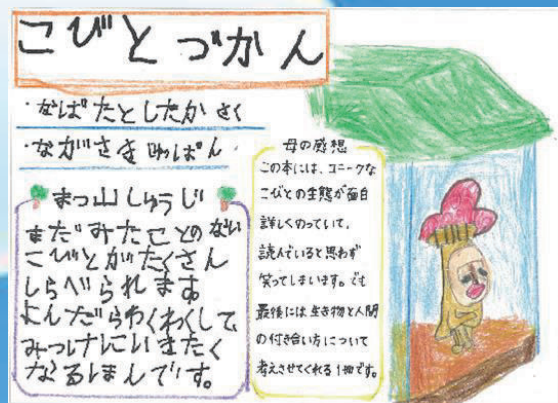 こびとづかん
・なばたとしたか さく
・ながさき しゅっぱん
まつ山しゅうじ
まだみたことのない
こびとがたくさん
しらべられます
よんだらわくわくして
みつけにいきたく
なるほんです。
母の感想
この本には、ユニークな
こびとの生態が面白
詳しくのっていて、
読んでいると思わず
笑ってしまいます。でも
最後には生き物と人間
の付き合い方について
考えさせてくれる1冊です。